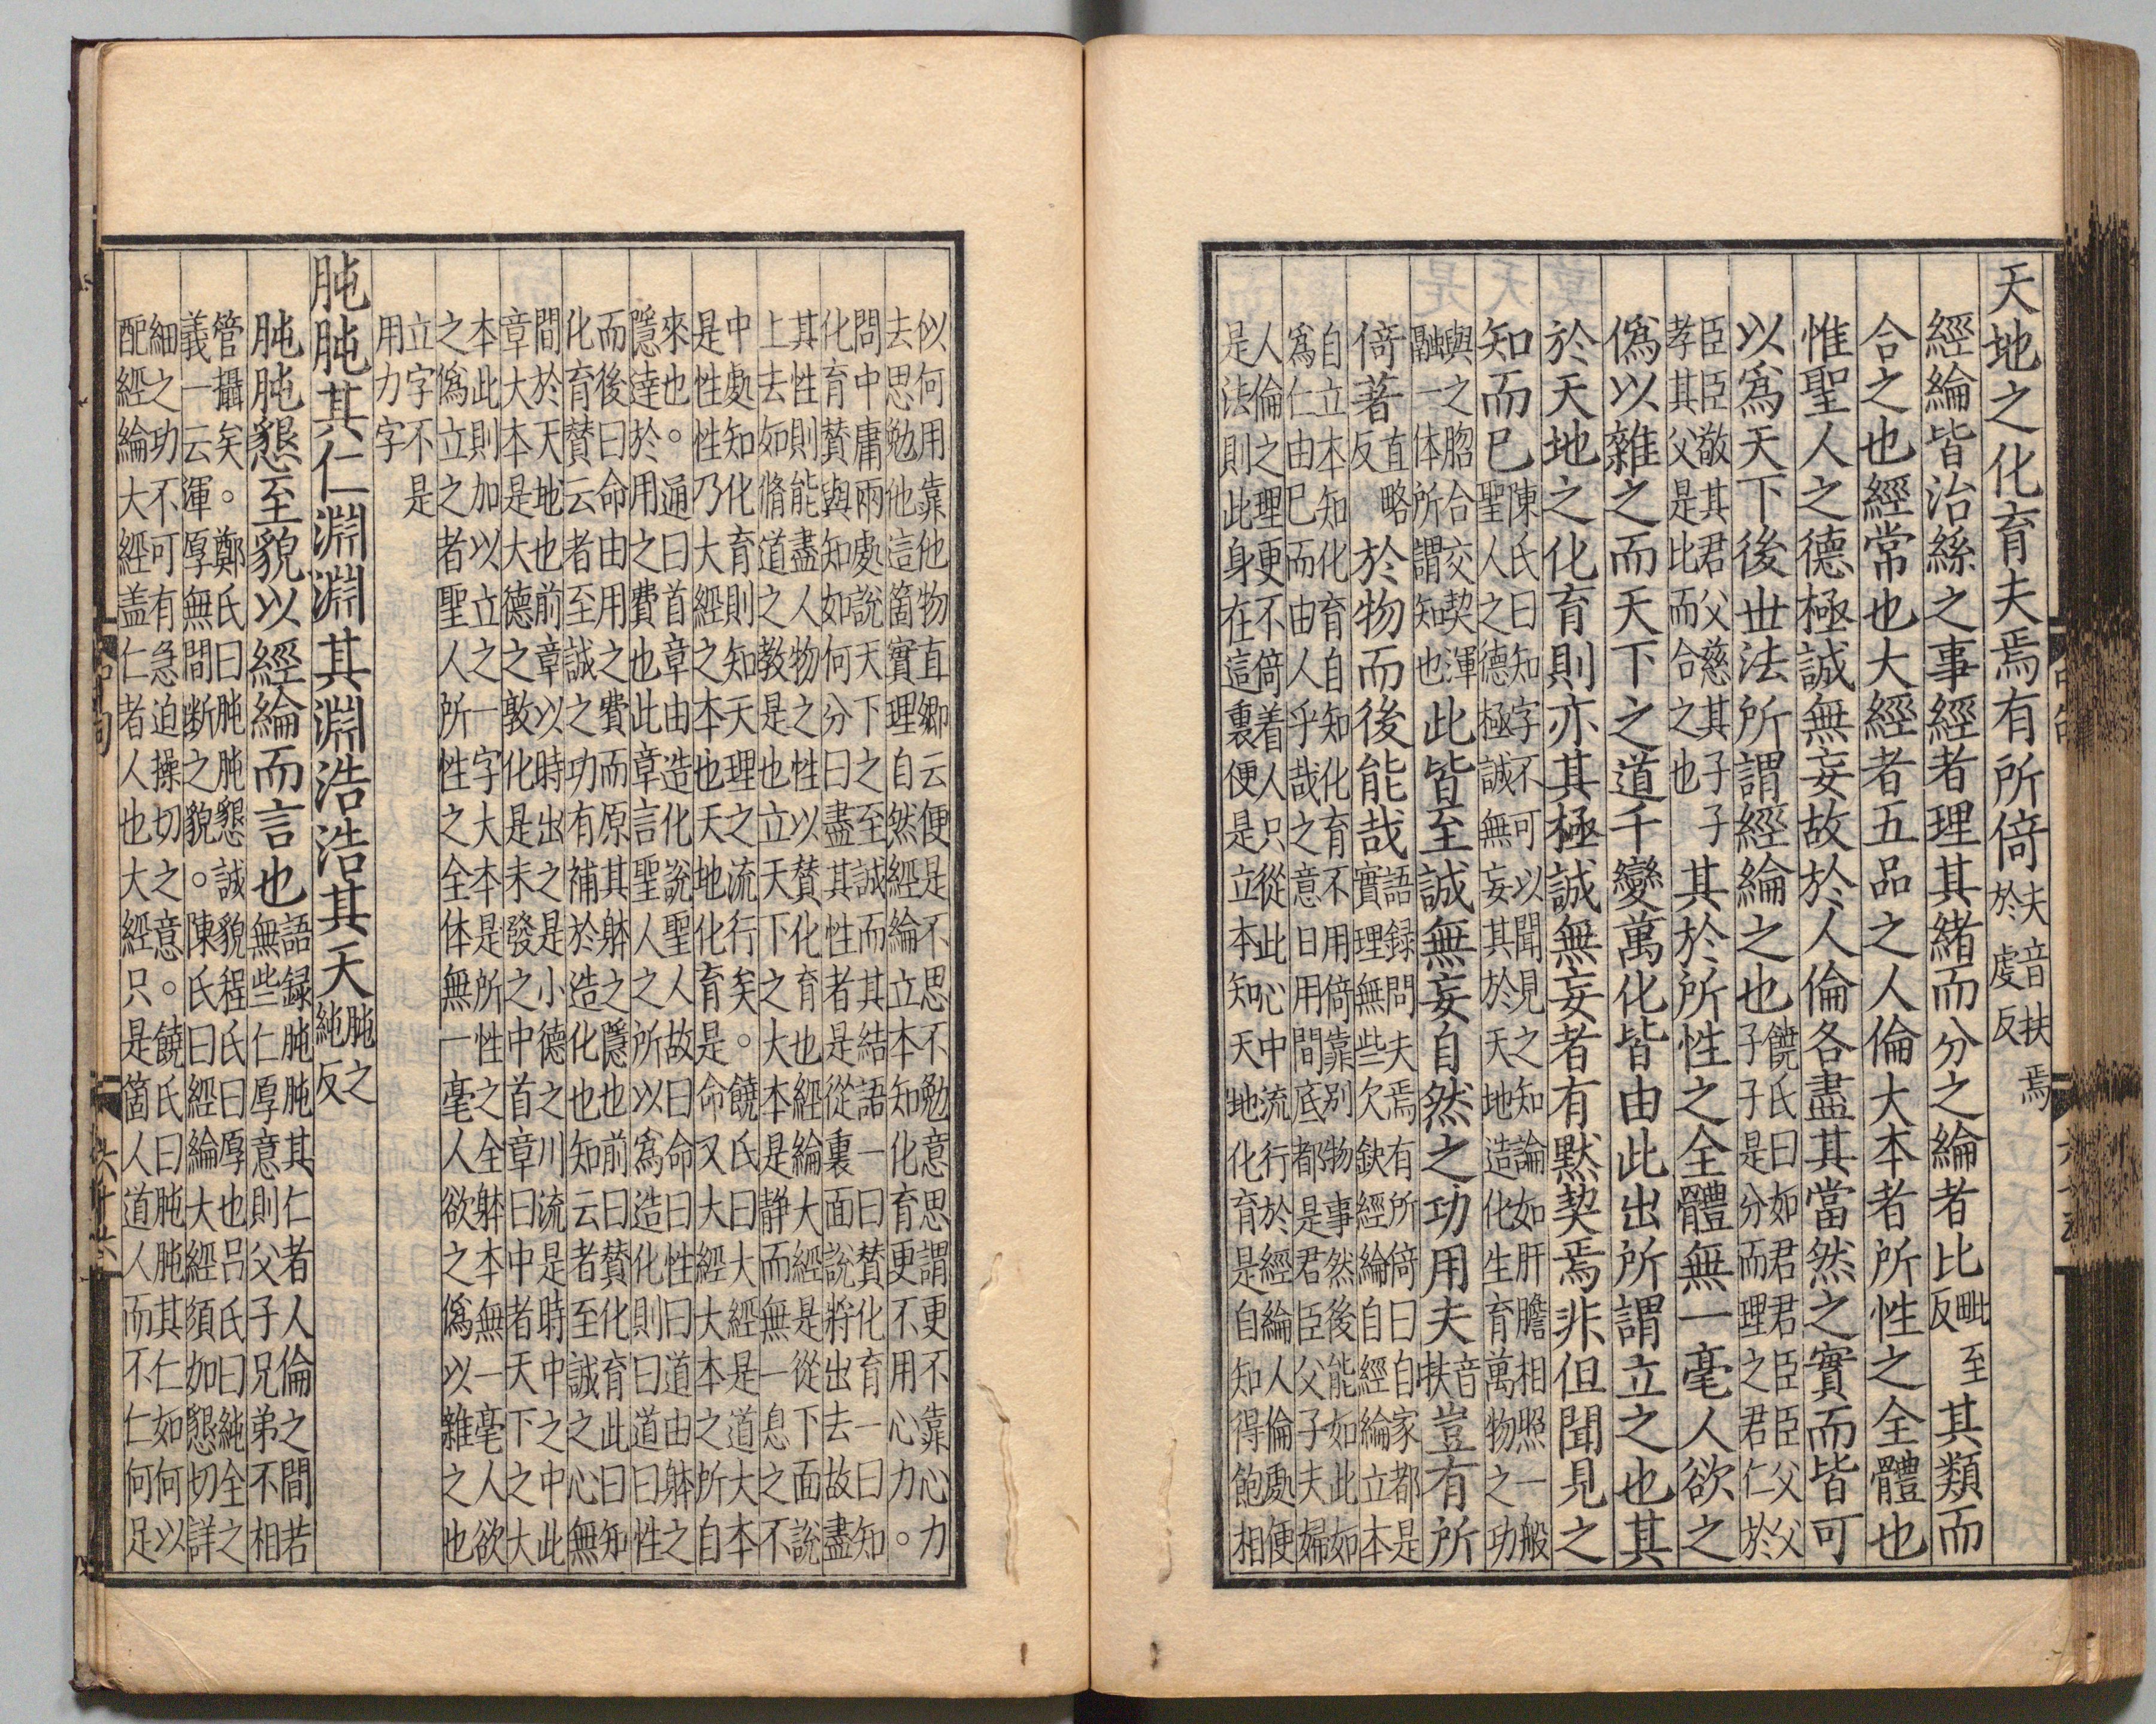 天地之化育夫焉有所倚夫音扶焉於虔反
經綸皆治絲之事經者理其緒而分之綸者比毗至反其類而
合之也經常也大經者五品之人倫大本者所性之全體也
惟聖人之德極誠無妄故於人倫各盡其當然之實而皆可
以爲天下後世法所謂經綸之也饒氏曰如君君臣臣父父子子是分而理之君仁於
臣臣敬其君父慈其子子孝其父是比而合之也其於所性之全體無一毫人欲之
僞以雜之而天下之道千變萬化皆由此出所謂立之也其
於天地之化育則亦其極誠無妄者有默契焉非但聞見之
知而已陳氏曰知字不可以聞見之知論如肝膽相照一般聖人之德極誠無妄其於天地造化生育萬物之功
與之脗合交契渾融一体所謂知也此皆至誠無妄自然之功用夫音扶豈有所
倚著直略反於物而後能哉語録問夫焉有所倚曰自家都是實理無些欠缺經綸自經綸立本
自立本知化育自知化育不用倚靠別物事然後能如此如
爲仁由已而由人乎哉之意日用間底都是君臣父子夫婦
人倫之理更不倚着人只從此心中流行於經綸人倫處便
是法則此身在這裏便是立本知天地化育是自知得飽相
似何用靠他物直卿云便是不思不勉意思謂更不靠心力
去思勉他這箇實理自然經綸立本知化育更不用心力。
問中庸兩處說天下之至誠而其結語一曰贊化育一曰知
化育贊與知如何分曰盡其性者是從裏面說將出去故盡
其性則能盡人物之性以贊化育也經綸大經是從下面說
上去如脩道之教是也立天下之大本是静而無一息之不
中處知化育則知天理之流行矣。饒氏曰大經是道大本
是性性乃大經之本也天地化育是命又大經大本之所自
來也。通曰首章由造化說聖人故曰命曰性曰道由躰之
隱達於用之費也此章言聖人之所以爲造化則曰道曰性
而後曰命由用之費而原其躰之隱也前曰贊化育此曰知
化育贊云者至誠之功有補於造化也知云者至誠之心無
間於天地也前章以時出之是小德之川流是時中之中此
章大本是大德之敦化是未發之中首章曰中者天下之大
本此則加以立之一字大本是所性之全躰本無一毫人欲
之僞立之者聖人所性之全体無一毫人欲之僞以雜之也
立字不是
用力字
肫肫其仁淵淵其淵浩浩其天肫之純反
肫肫懇至貌以經綸而言也語録肫肫其仁者人倫之間若無些仁厚意則父子兄弟不相
管攝矣。鄭氏曰肫肫懇誠貌程氏曰厚也吕氏曰純全之
義一云渾厚無間断之貌。陳氏曰經綸大經須如懇切詳
細之功不可有急迫操切之意。饒氏曰肫肫其仁如何以
配經綸大經盖仁者人也大經只是箇人道人而不仁何足